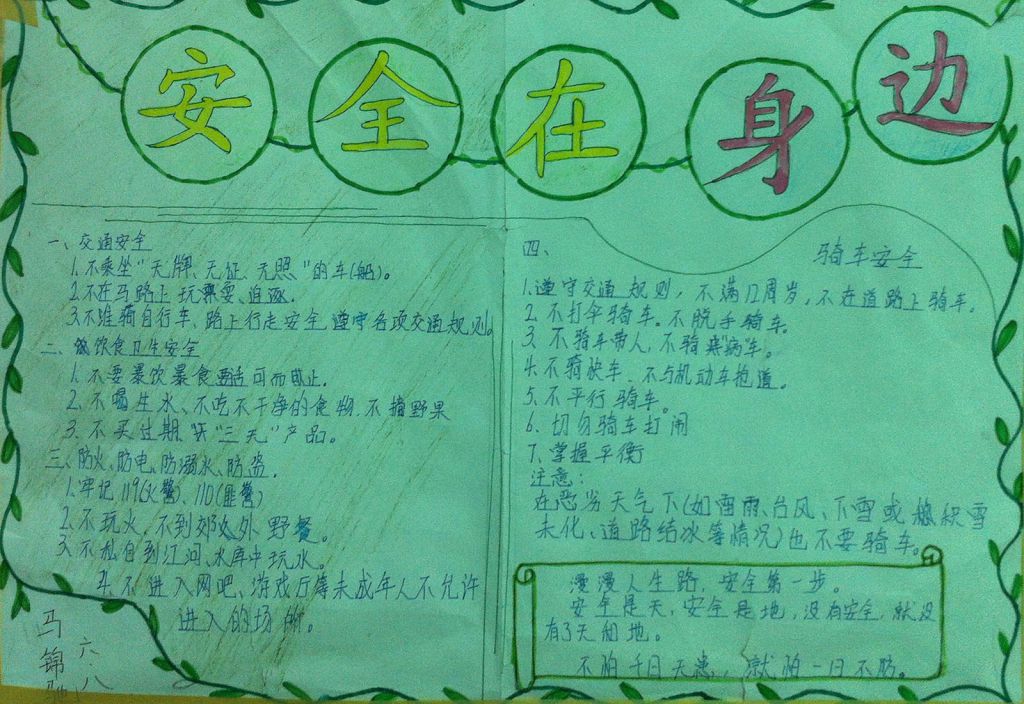 安全在身边
一、交通安全
1.不乘坐"无牌、无证、无照"的车(船)。
2.不在马路上玩耍、追逐.
3.不准骑自行车、路上行走安全遵守各项交通规则。
二、饮食卫生安全
1.不要暴饮暴食 可而止.
2、不喝生水、不吃不干净的食物.不摘野果
3.不买过期"三无"产品。
三、防火、防电、防溺水、防盗.
1.牢记119(火警)、110(匪警)
2.不玩火,不到郊外野餐。
3、不私自到江河、水库中玩水。
4.不进入网吧、游戏厅等未成年人不允许
进入的场所。
四、
骑车安全
1.遵守交通规则,不满12周岁,不在道路上骑车.
2.不打伞骑车。不脱手骑车.
3.不骑车带人,不骑"病"车。
4.不骑快车.不与机动车抢道。
5.不平行骑车。
6.切勿骑车打闹
7.掌握平衡
注意:
在恶劣天气下(如雷雨、台风、下雪或积雪
未化、道路结冰等情况)也不要骑车。
漫漫人生路,安全第一步。
安全是天,安全是地,没有安全,就没
有了天和地。
不怕千日无患,就怕一日不防。
马锦
六.八